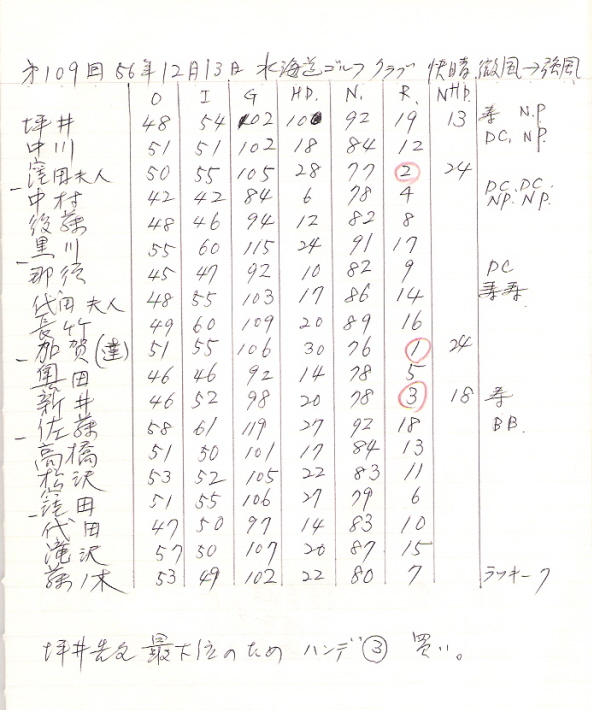 第109回 56年12月13日 北海道ゴルフクラブ 快晴 微風→強風
O I G HD. N. R. NHP.
坪井 48 54 102 10 92 19 13 寿 N.P
中川 51 51 102 18 84 12 DC, NP
窪田夫人 50 55 105 28 77 2 24
中村 42 42 84 6 78 4 DC. DC. NP. NP.
後藤 48 46 94 12 82 8
黒川 55 60 115 24 91 17
那須 45 47 92 10 82 9 DC
代田夫人 48 55 103 17 86 14 寿寿
長竹 49 60 109 20 89 16
加賀(達) 51 55 106 30 76 1 24
奥田 46 46 92 14 78 5
新井 46 52 98 20 78 3 18 寿
佐藤 58 61 119 27 92 18 BB.
高橋 51 50 101 17 84 13
松沢 53 52 105 22 83 11
窪田 51 55 106 27 79 6
代田 47 50 97 14 83 10
滝沢 57 50 107 20 87 15
藤ノ木 53 49 102 22 80 7 ラッキー7
坪井 最下位のため ハンデ③ 買い。